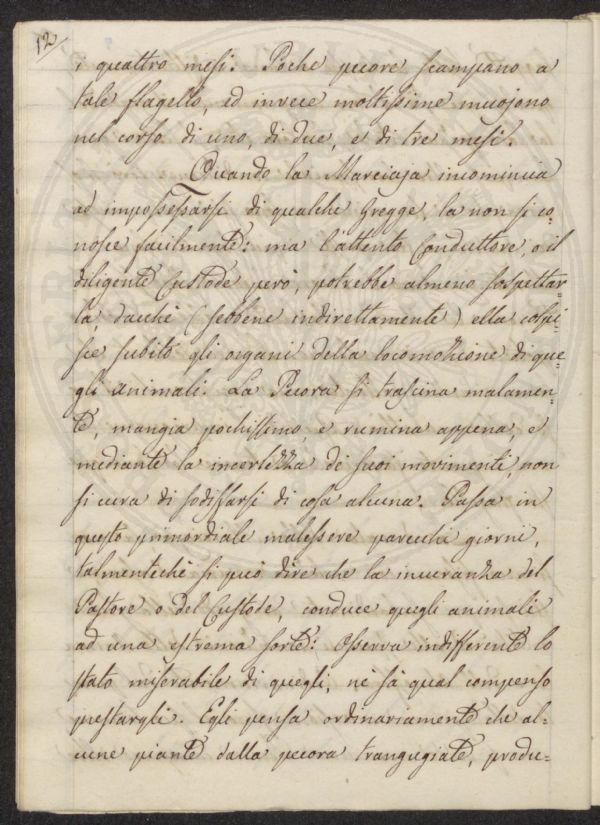 12
i quattro mesi. Poche pecore scampano a
tale flagello, ed invece moltissime muojono
nel corso di uno, di due, e di tre mesi.
Quando la Marciaja incomincia
ad impossessarsi di qualche gregge, la non si co-
nosce facilmente: ma l'attento Conduttore, o il
diligente Custode però, potrebbe almeno sospettar-
la, dacchè (sebbene indirettamente) ella colpi-
sce subito gli organi della locomozione di que-
gli animali. La Pecora si trascina malamen-
te, mangia pochissimo, e rumina appena, e
mediante la incertezza de' suoi movimenti, non
si cura di sodisfarsi di cosa alcuna. Passa in
questo primordiale malessere parecchi giorni,
talmentechè si può dire che la incuranza del
Pastore o del Custode, conduce quegli animali
ad una estrema sorte: Osserva indifferente lo
stato miserabile di quegli, nè sà qual compenso
prestargli. Egli pensa ordinariamente che al-
cune piante dalla pecora trangugiate, produ-